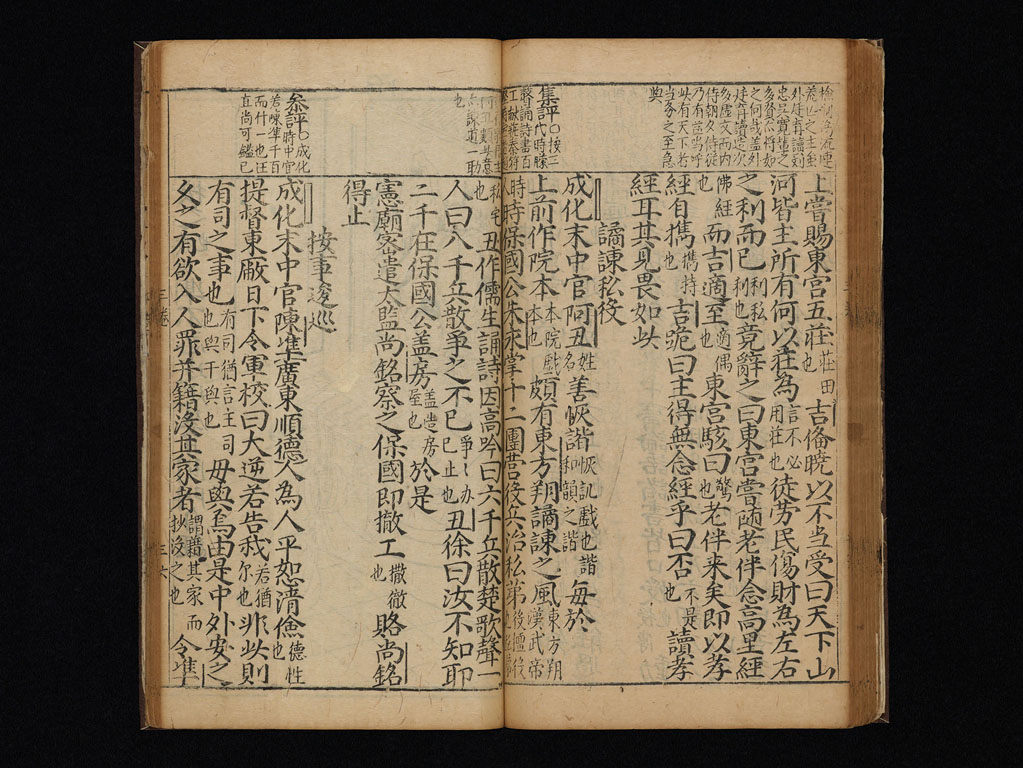 上嘗賜東宮五莊莊田也吉俻曉以不當受曰天下山
河皆主所有何以莊為言不必用莊也徒劳民傷財為左右
之利而已利私利也竟辭之曰東宮嘗隨老伴念高里經
佛經也而吉適至適偶也東宮駭曰驚也老伴来矣即以孝
經自擕擕持也吉跪曰主得無念經乎曰否不是也讀孝
經耳其見畏如此
譎諫私役
成化末中官阿丑姓名善恢諧恢訊戲也諧和韻之諧每於
上前作院本本院戲本也頗有東方朔譎諫之風東方朔漢武帝
時人時保國公朱永掌十二團营役兵治私苐
私宅也丑作儒生誦詩因高吟曰六千兵散楚歌聲一
人曰八千兵散爭之不已爭辦已止也丑徐曰汝不知耶
二千在保國公盖房盖造房屋也於是
憲廟宻遣太監尚銘察之保國即撤工撒徹也賂尚銘
得止
按事逡巡
成化末中官陳凖廣東順德人為人平恕清儉德性
提督東厰日下令軍校曰大逆若告我若猶尔也非此則
有司之事也有司猶言主司也與干與也毋與焉由是中外安之
久之有欲入人罪并籍沒其家者謂籍其家而抄沒之也令凖
集評○按三代時矇瞽誦詩書百工
叅評○成化時中官若陳凖千百而什一也汪直尚可鑑已
三卷
三六